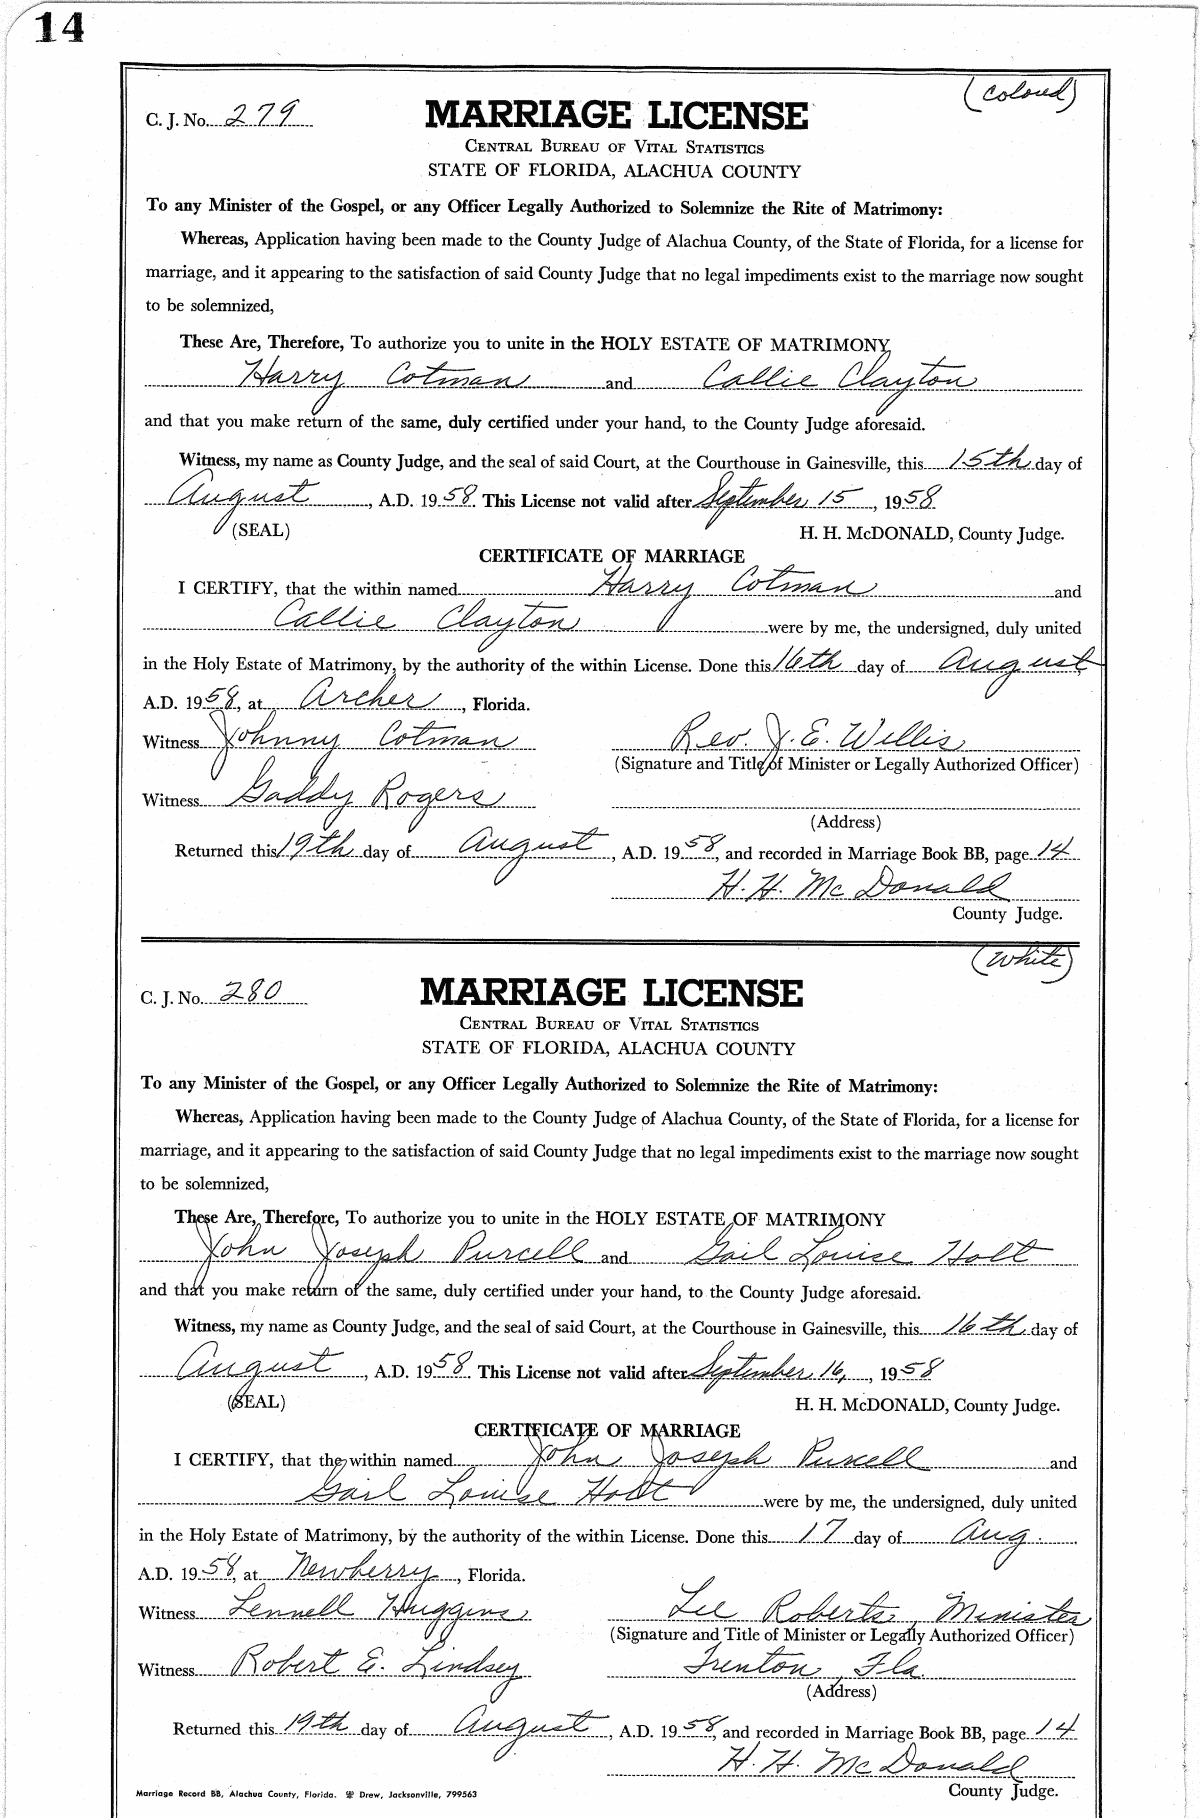 14
(colored)
C. J. No. 279
MARRIAGE LICENSE
CENTRAL BUREAU OF VITAL STATISTICS
STATE OF FLORIDA, ALACHUA COUNTY
To any Minister of the Gospel, or any Officer Legally Authorized to Solemnize the Rite of Matrimony:
Whereas, Application having been made to the County Judge of Alachua County, of the State of Florida, for a license for
marriage, and it appearing to the satisfaction of said County Judge that no legal impediments exist to the marriage now sought
to be solemnized,
These Are, Therefore, To authorize you to unite in the HOLY ESTATE OF MATRIMONY
Harry Cotman and Callie Clayton
and that you make return of the same, duly certified under your hand, to the County Judge aforesaid.
Witness, my name as County Judge, and the seal of said Court, at the Courthouse in Gainesville, this 15th day of
August, A.D. 1958. This License not valid after September 15, 1958
(SEAL) H. H. McDONALD, County Judge.
CERTIFICATE OF MARRIAGE
I CERTIFY, that the within named Harry Cotman and
Callie Clayton were by me, the undersigned, duly united
in the Holy Estate of Matrimony, by the authority of the within License. Done this 16th day of August
A.D. 1958, at Archer, Florida.
Witness Johnny Cotman Rev. J. E. Willis
(Signature and Title of Minister or Legally Authorized Officer)
Witness Gaddy Rogers
(Address)
Returned this 19th day of August, A.D. 1958, and recorded in Marriage Book BB, page 14
H. H. McDonald
County Judge.
(White)
C. J. No. 280
MARRIAGE LICENSE
CENTRAL BUREAU OF VITAL STATISTICS
STATE OF FLORIDA, ALACHUA COUNTY
To any Minister of the Gospel, or any Officer Legally Authorized to Solemnize the Rite of Matrimony:
Whereas, Application having been made to the County Judge of Alachua County, of the State of Florida, for a license for
marriage, and it appearing to the satisfaction of said County Judge that no legal impediments exist to the marriage now sought
to be solemnized,
These Are, Therefore, To authorize you to unite in the HOLY ESTATE OF MATRIMONY
John Joseph Purcell and Gail Louise Holt
and that you make return of the same, duly certified under your hand, to the County Judge aforesaid.
Witness, my name as County Judge, and the seal of said Court, at the Courthouse in Gainesville, this 16th day of
August, A.D. 1958. This License not valid after September 16, 1958
(SEAL) H. H. McDONALD, County Judge.
CERTIFICATE OF MARRIAGE
I CERTIFY, that the within named John Joseph Purcell and
Gail Louise Holt were by me, the undersigned, duly united
in the Holy Estate of Matrimony, by the authority of the within License. Done this 17 day of Aug.
A.D. 1958, at Newberry, Florida.
Witness Lennell Huggins Lee Roberts, Minister
(Signature and Title of Minister or Legally Authorized Officer)
Witness Robert E. Lindsey Trenton, Fla.
(Address)
Returned this 19th day of August, A.D. 1958, and recorded in Marriage Book BB, page 14
H. H. McDonald
County Judge.
Marriage Record BB, Alachua County, Florida. Drew, Jacksonville, 799563